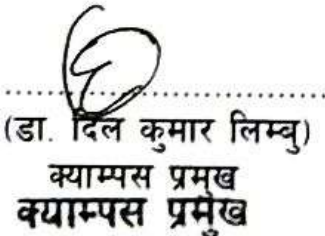 (डा. दिल कुमार लिम्बु)
क्याम्पस प्रमुख
क्याम्पस प्रमुख